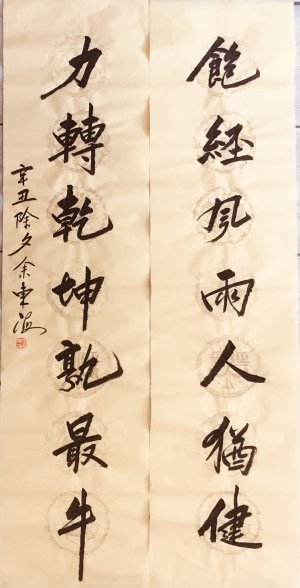 飽經風雨人猶健
力轉乾坤孰最牛
辛丑除夕余東海